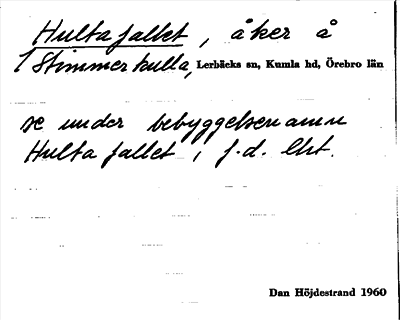 Hultafallet, åker å
1 Stimmerkulla, Lerbäcks sn, Kumla hd, Örebro län
se under bebyggelsenamn
Hultafallet, f.d. lht.
Dan Höjdestrand 1960